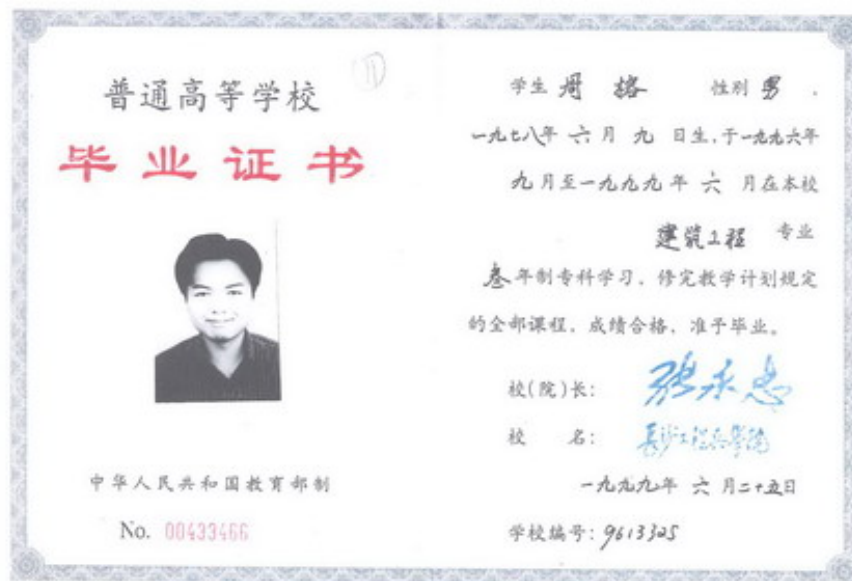 普通高等学校
毕业证书
中华人民共和国教育部制
No. 00433466
学生 周 性别 男 ,
一九七八年 六 月 九 日生,于一九九六年
九月至一九九九年 六 月在本校
建筑工程 专业
叁年制专科学习,修完教学计划规定
的全部课程,成绩合格,准予毕业。
校(院)长: 张永忠
校 名: 长沙工程兵学院
一九九九年 六 月二十五日
学校编号: 9613325